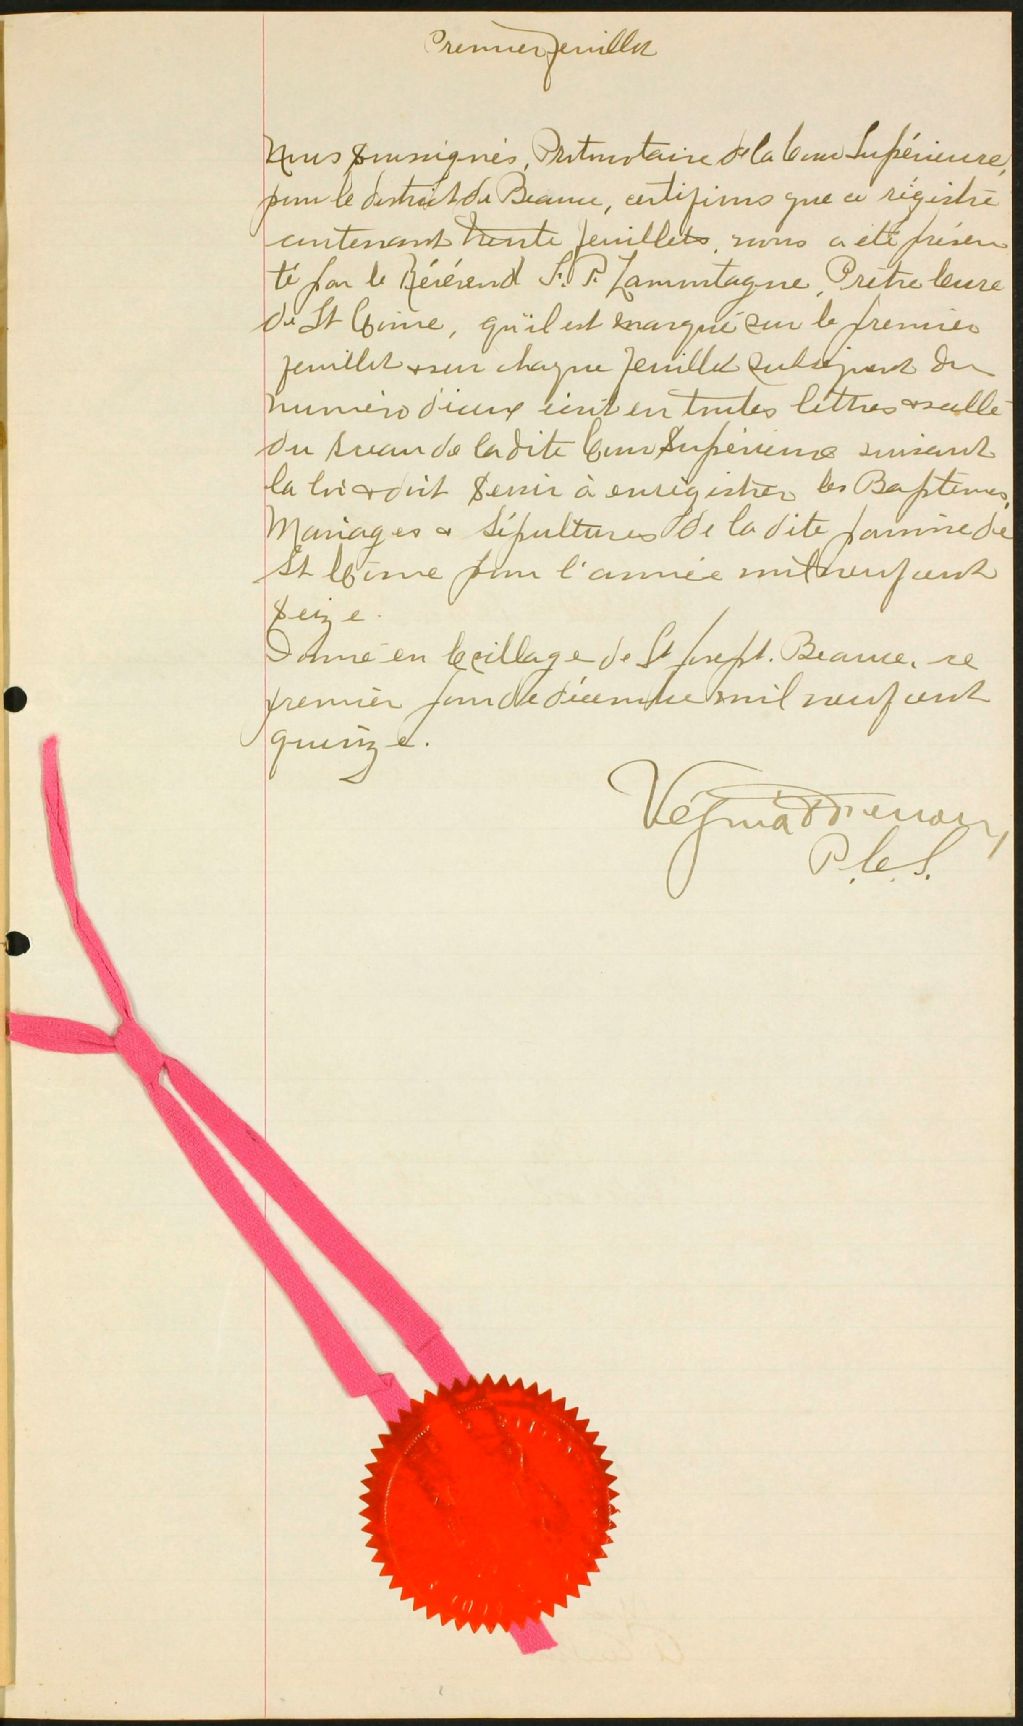 Premier feuillet
Nous soussignés, Protonotaire de la Cour Supérieure,
pour le district de Beauce, certifions que ce régistre
contenant trente feuillets, nous a été présen
té par le Révérend F. P. Lamontagne, Prêtre Curé
de St Côme, qu'il est marqué sur le premier
feuillet & sur chaque feuillet subséquent du
numéro d'iceux écrit en toutes lettres & scellé
du sceau de ladite Cour Supérieure suivant
la loi & doit servir à enrégistrer les Baptêmes,
Mariages & Sépultures de la dite paroisse de
St Côme pour l'année mil neuf cent
seize.
Donné en le village de St Joseph. Beauce, ce
premier jour de décembre mil neuf cent
quinze.
Vézina
P.C.S.